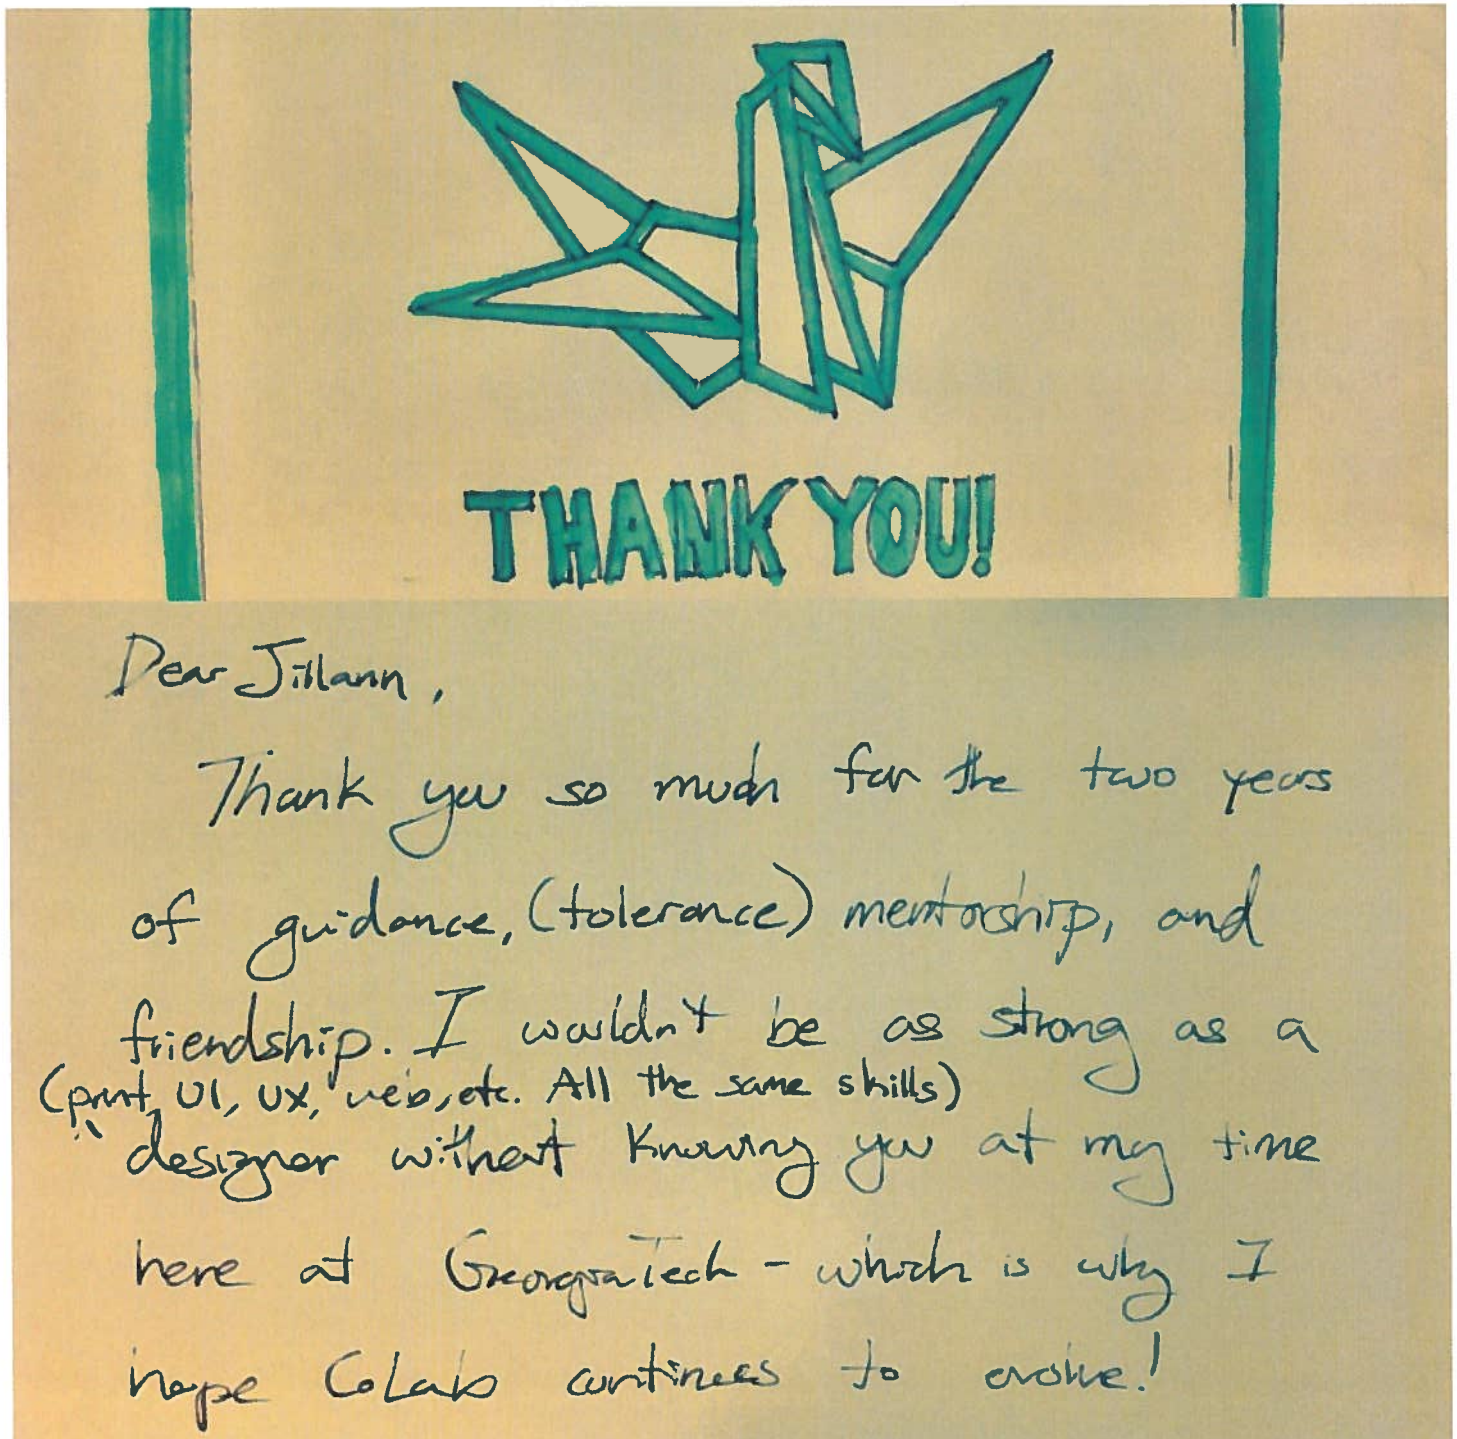 THANK YOU!
Dear Jillann,
Thank you so much for the two years
of guidance, (tolerance) mentorship, and
friendship. I wouldn't be as strong as a
(print, UI, UX, web, etc. All the same skills)
designer without knowing you at my time
here at GeorgiaTech - which is why I
hope CoLab continues to evolve!